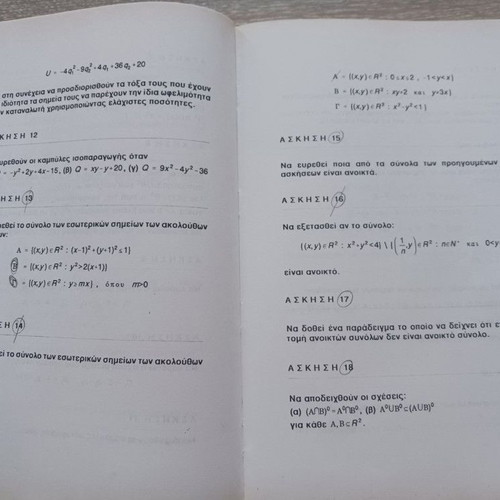 U = -4q₁²-9q₂²+4q₁+36q₂+20
στη συνέχεια να προσδιορισθούν τα τόξα τους που έχουν
ιδιότητα τα σημεία τους να παρέχουν την ίδια ωφελιμότητα
ν καταναλωτή χρησιμοποιώντας ελάχιστες ποσότητες.
ΚΗΣΗ 12
υρεθούν οι καμπύλες ισοπαραγωγής όταν
= -y²+2y+4x-15, (β) Q = xy-y+20, (γ) Q = 9x²-4y²-36
ΗΣΗ 13
ρεθεί το σύνολο των εσωτερικών σημείων των ακολούθων
ων:
A = {(x,y)∈R² : (x-1)²+(y+1)²≤1}
B = {(x,y)∈R² : y²>2(x+1)}
= {(x,y)∈R² : y≥mx} , όπου m>0
ΣΗ 14
εί το σύνολο των εσωτερικών σημείων των ακολούθων
A = {(x,y)∈R² : 0≤x≤2 , -1<y<x}
B = {(x,y)∈R² : xy≠2 και y≠3x}
Γ = {(x,y)∈R² : x²-y²<1}
ΑΣΚΗΣΗ 15
Να ευρεθεί ποια από τα σύνολα των προηγουμένων
ασκήσεων είναι ανοικτά.
ΑΣΚΗΣΗ 16
Να εξετασθεί αν το σύνολο:
{(x,y)∈R² : x²+y²<4} \ {(1/n,y)∈R² : n∈N* και 0<y
είναι ανοικτό.
ΑΣΚΗΣΗ 17
Να δοθεί ένα παράδειγμα το οποίο να δείχνει ότι
τομή ανοικτών συνόλων δεν είναι ανοικτό σύνολο.
ΑΣΚΗΣΗ 18
Να αποδειχθούν οι σχέσεις:
(α) (A∩B)⁰=A⁰∩B⁰, (β) A⁰∪B⁰⊂(A∪B)⁰
για κάθε A,B⊆R².